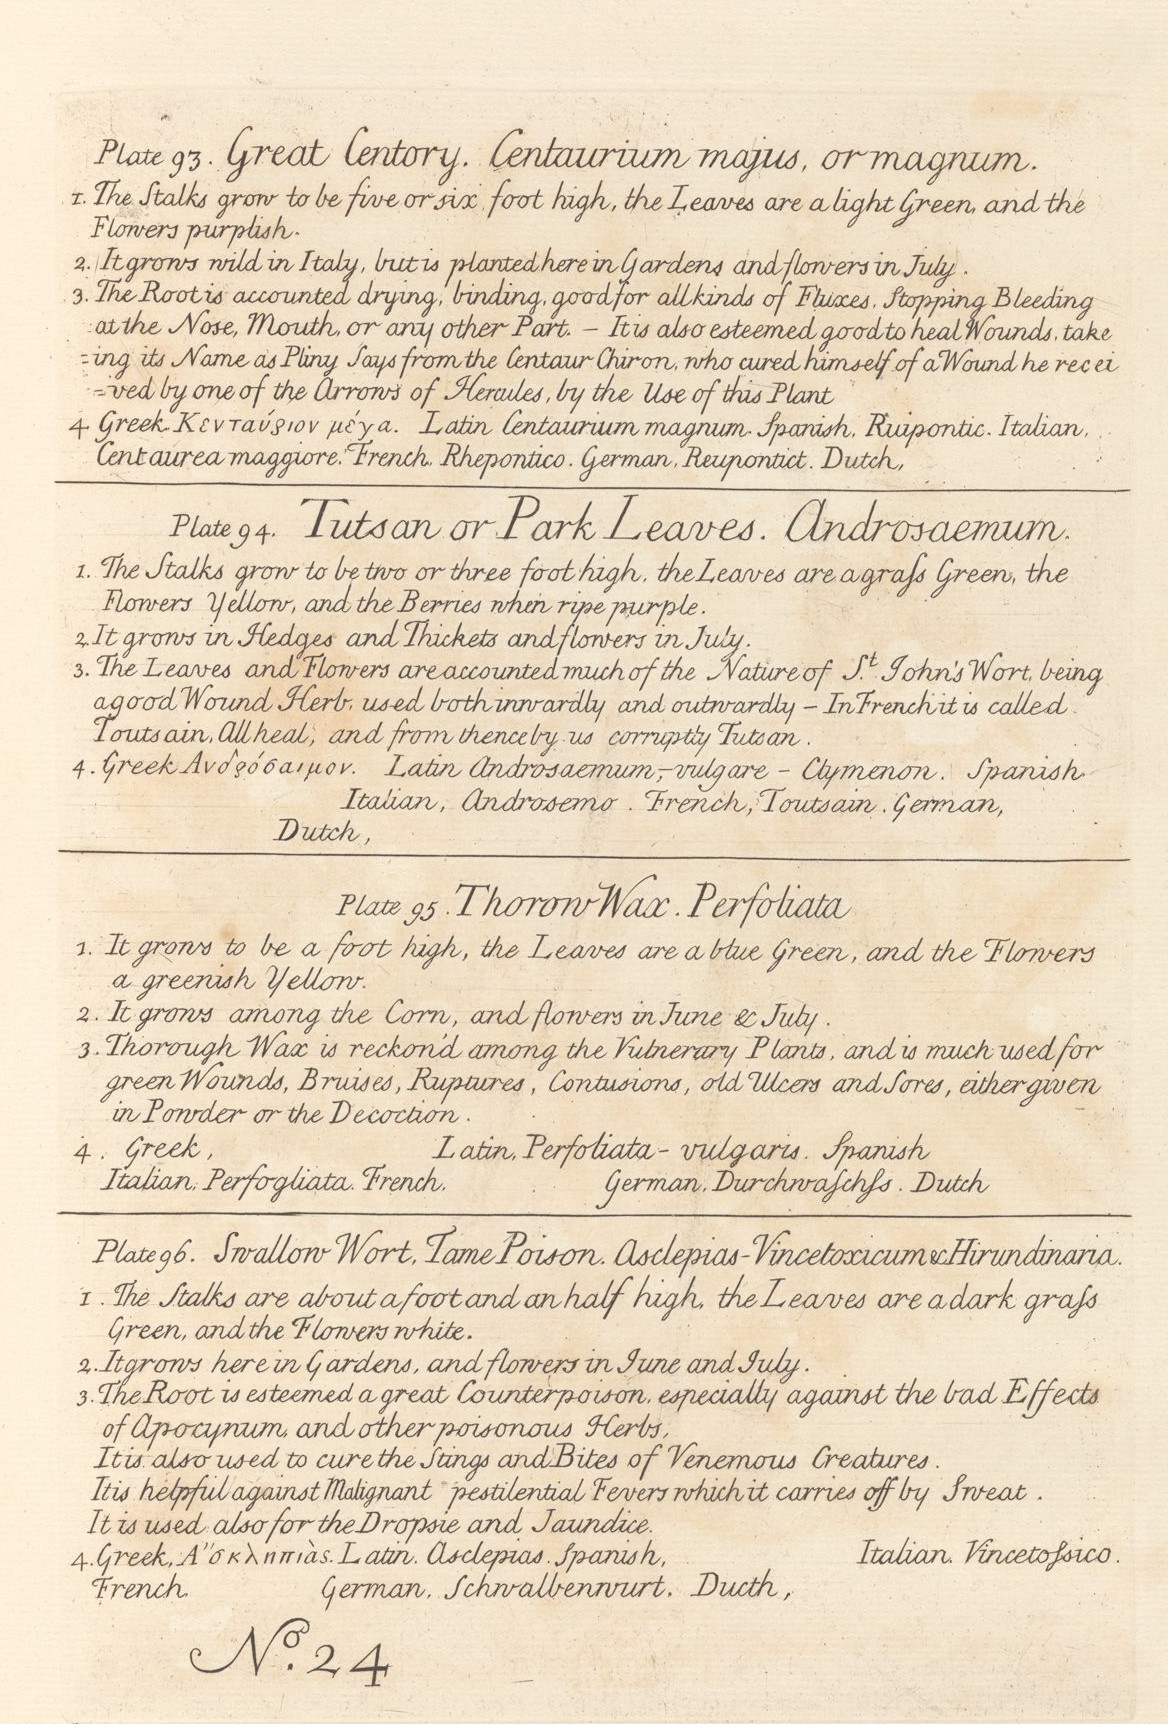 Plate 93. Great Centory. Centaurium majus, or magnum.
1. The Stalks grow to be five or six foot high, the Leaves are a light Green, and the
Flowers purplish.
2. It grows wild in Italy, but is planted here in Gardens and flowers in July.
3. The Root is accounted drying, binding, good for all kinds of Fluxes, Stopping Bleeding
at the Nose, Mouth, or any other Part. – It is also esteemed good to heal Wounds, take
=ing its Name as Pliny Says from the Centaur Chiron, who cured himself of a Wound he recei
=ved by one of the Arrows of Hercules, by the Use of this Plant
4 Greek Κενταύριον μέγα. Latin Centaurium magnum. Spanish, Ruipontic. Italian,
Centaurea maggiore. French, Rhepontico. German, Reupontict. Dutch,
Plate 94. Tutsan or Park Leaves. Androsaemum.
1. The Stalks grow to be two or three foot high, the Leaves are a graſs Green, the
Flowers Yellow, and the Berries when ripe purple.
2. It grows in Hedges and Thickets and flowers in July.
3. The Leaves and Flowers are accounted much of the Nature of St. John's Wort, being
a good Wound Herb, used both inwardly and outwardly – In French it is called
Toutsain, All heal, and from thence by us corruptly Tutsan.
4. Greek Ανδρόσαιμον. Latin Androsaemum,–vulgare – Clymenon. Spanish
Italian, Androsemo. French, Toutsain. German,
Dutch,
Plate 95. Thorow Wax. Perfoliata
1. It grows to be a foot high, the Leaves are a blue Green, and the Flowers
a greenish Yellow.
2. It grows among the Corn, and flowers in June & July.
3. Thorough Wax is reckon'd among the Vulnerary Plants, and is much used for
green Wounds, Bruises, Ruptures, Contusions, old Ulcers and Sores, either given
in Powder or the Decoction.
4. Greek, Latin, Perfoliata – vulgaris. Spanish
Italian, Perfogliata. French, German, Durchwaſchſs. Dutch
Plate 96. Swallow Wort, Tame Poison. Asclepias–Vincetoxicum & Hirundinaria.
1. The Stalks are about a foot and an half high, the Leaves are a dark graſs
Green, and the Flowers white.
2. It grows here in Gardens, and flowers in June and July.
3. The Root is esteemed a great Counterpoison, especially against the bad Effects
of Apocynum, and other poisonous Herbs,
It is also used to cure the Stings and Bites of Venemous Creatures.
It is helpful against Malignant pestilential Fevers which it carries off by Sweat.
It is used also for the Dropsie and Jaundice.
4. Greek, Α῎σκληπιὰς. Latin, Asclepias. Spanish, Italian. Vincetoſsico.
French German, Schwalbenwurt. Ducth,
No. 24